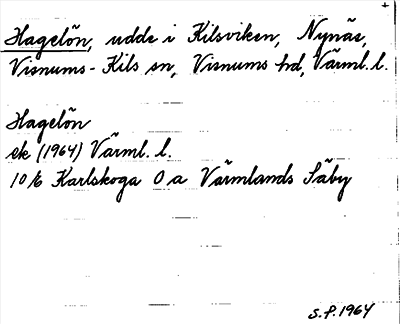 Hagelön, udde i Kilsviken, Nynäs,
Visnums-Kils sn, Visnums hd, Värml. l.
Hagelön
ek (1964) Värml. l.
10 E Karlskoga O a Värmlands Säby
S.P. 1964